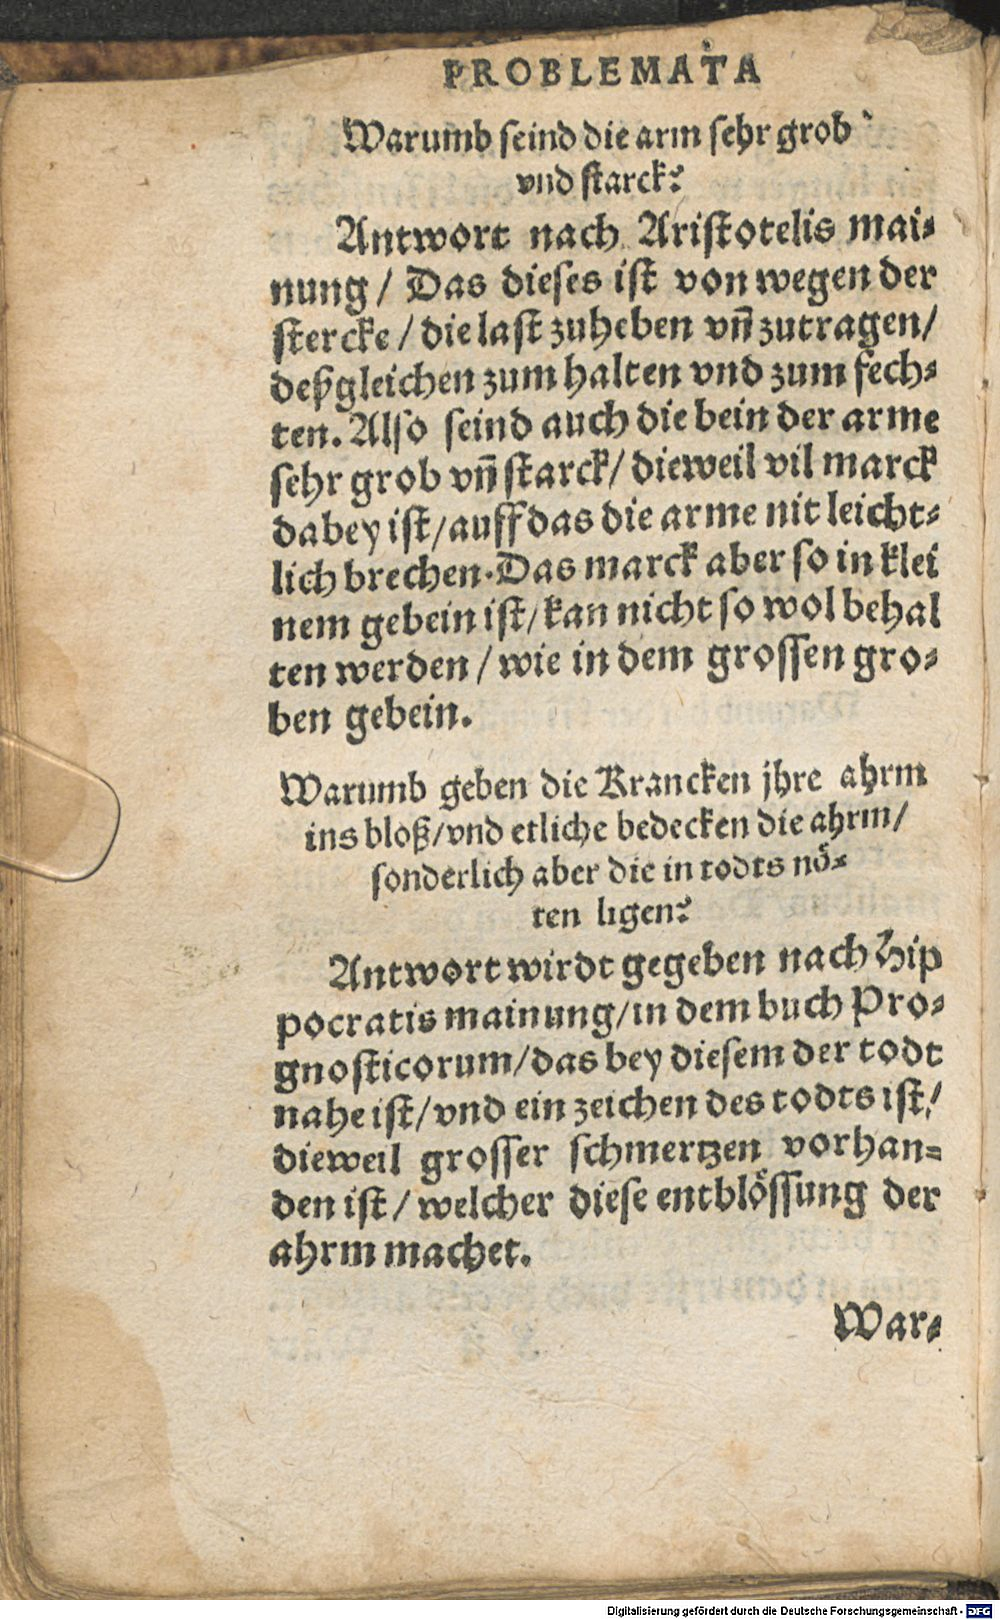 PROBLEMATA
Warumb seind die arm sehr grob
vnd starck?
Antwort nach Aristotelis mai⸗
nung / Das dieses ist von wegen der
stercke / die last zuheben vñ zutragen/
deßgleichen zum halten vnd zum fech⸗
ten. Also seind auch die bein der arme
sehr grob vñ starck/ dieweil vil marck
dabey ist/auff das die arme nit leicht⸗
lich brechen. Das marck aber so in klei
nem gebein ist/kan nicht so wol behal
ten werden / wie in dem grossen gro⸗
ben gebein.
Warumb geben die Krancken jhre ahrm
ins bloß/vnd etliche bedecken die ahrm/
sonderlich aber die in todts nö⸗
ten ligen?
Antwort wirdt gegeben nach Hip
pocratis mainung/in dem buch Pro⸗
gnosticorum/das bey diesem der todt
nahe ist/vnd ein zeichen des todts ist/
dieweil grosser schmertzen vorhan⸗
den ist/ welcher diese entblössung der
ahrm machet.
War⸗
Digitalisierung gefördert durch die Deutsche Forschungsgemeinschaft - DFG